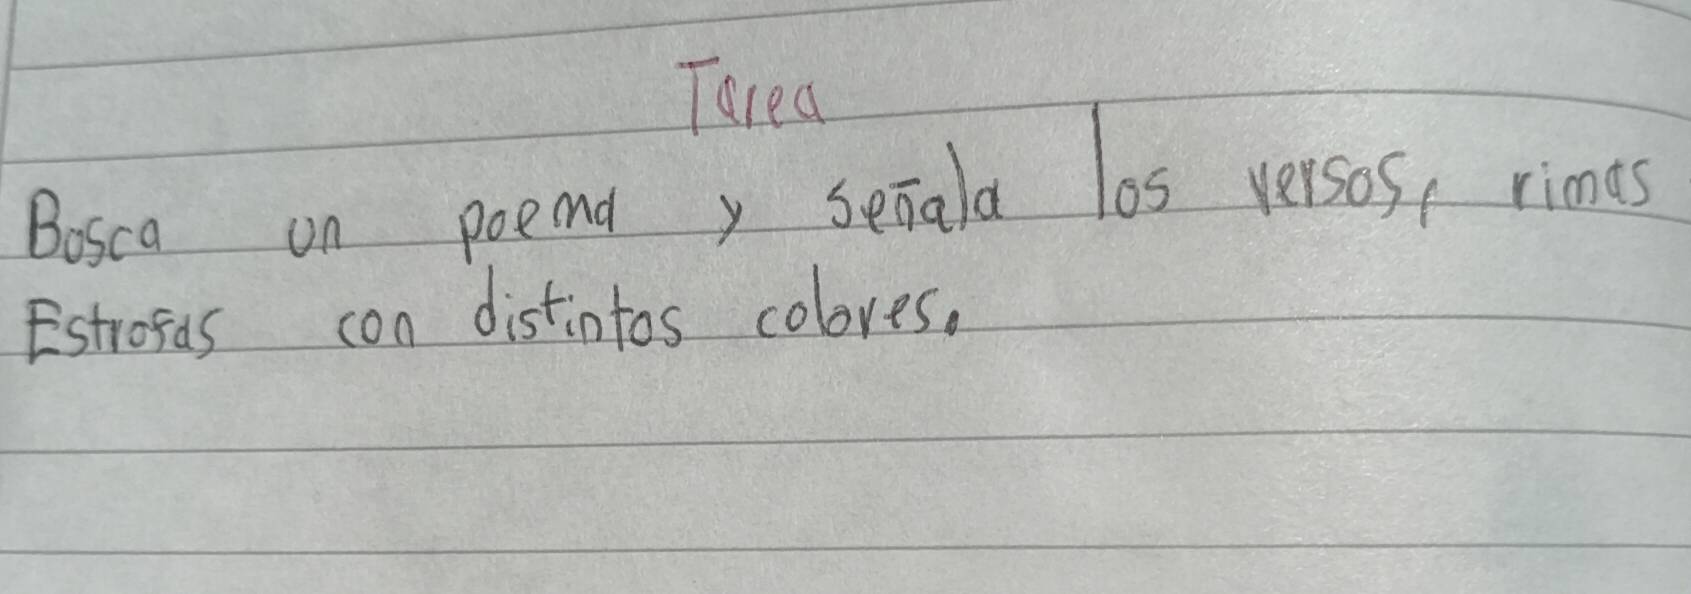 Tarea
Bosca un poema y señala los versos, rimas
Estrofas con distintos colores.